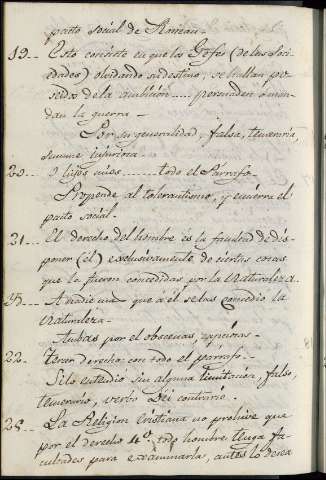 pacto social de
19... Esto consiste en que los Gefes (de las Soci-
edades) olvidando su destino, se hallan po-
seidos de la ambicion ..... persuaden ó man-
dan la guerra -
Por su generalidad, falsa, temeraria,
summe injuriosa.
20... O hijos mios ...... todo el Párrafo -
Propende al tolerantismo, y encierra el
pacto social.
21... El derecho del hombre es la facultad de dis-
poner (él) exclusivamente de ciertas cosas
que le fueron concedidas por la Naturaleza.
A nadie mas que a él se las concedio la
Naturaleza -
Ambas por el obscenas,
22... tienen derecho: con todo el parrafo -
Si lo entendió sin alguna limitacion, falso,
temerario, verbo Dei contrario.
La Religion Cristiana no prohive que
por el derecho 4º todo hombre tenga fa-
cultades para examinarla, antes lo desea